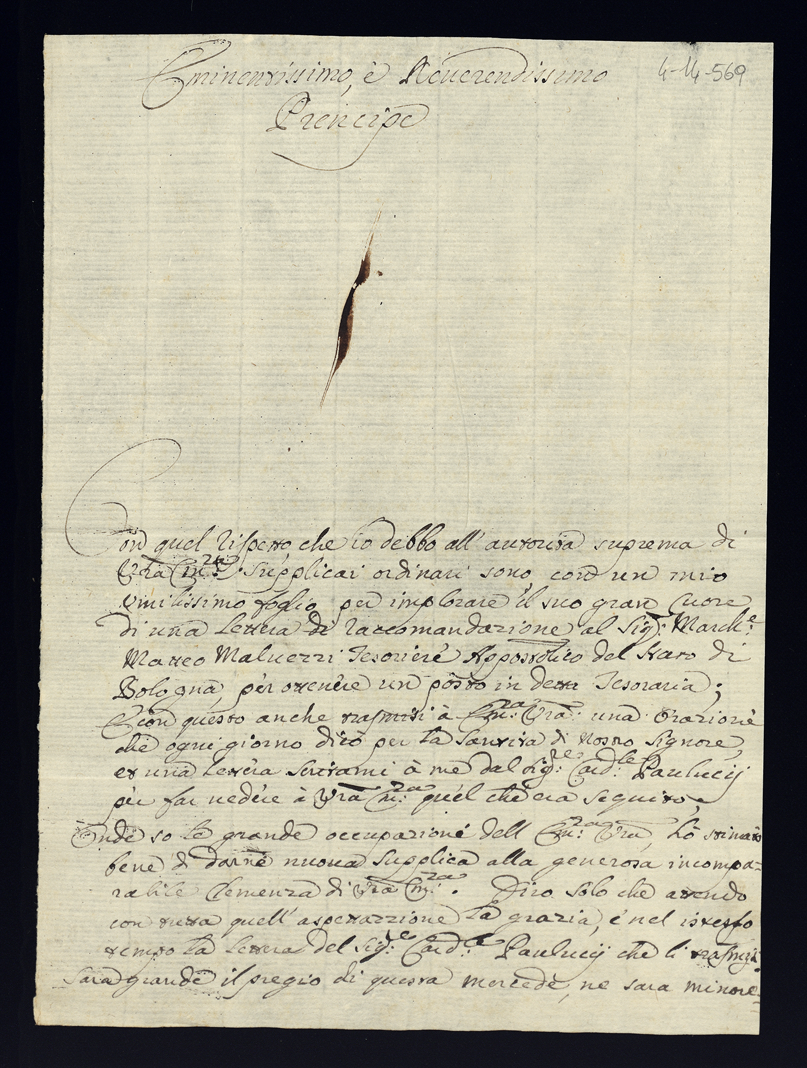 Eminentissimo, è Reverendissimo
4-14-569
Prencipe
Con quel rispetto che io debbo all' autorità suprema di
Vra Em:za Supplicai ordinari sono, con un mio
umilissimo foglio per implorare il suo gran Cuore
di una Lettera di raccomandazione al Sig:r March:e
Matteo Maluezzi Tesorieré Appostolico del Stato di
Bologna per ottenere un posto in detta Tesoraria;
E con questo anche trasmisi à Em:za Vra una orazione
che ogni giorno dirò per la Santità di Nostro Signore,
et una lettera scritami à me dal Sig:re Card:le Paulucij
per far uedere à Vra Em:za quel che era seguito,
Onde so le grande occupazione dell' Em:za Vra, hò stimato
bene di darne nuoua Supplica alla generosa incompa=
rabile Clemenza di Vra Em:za. Diro solo che atendo
con tutta quell' aspettazzione la grazia, è nel istesso
tempo la lettera del Sig:e Card:le Paulucij che li trasmisi
Sara grande il pregio di questa mercede, ne sara minore